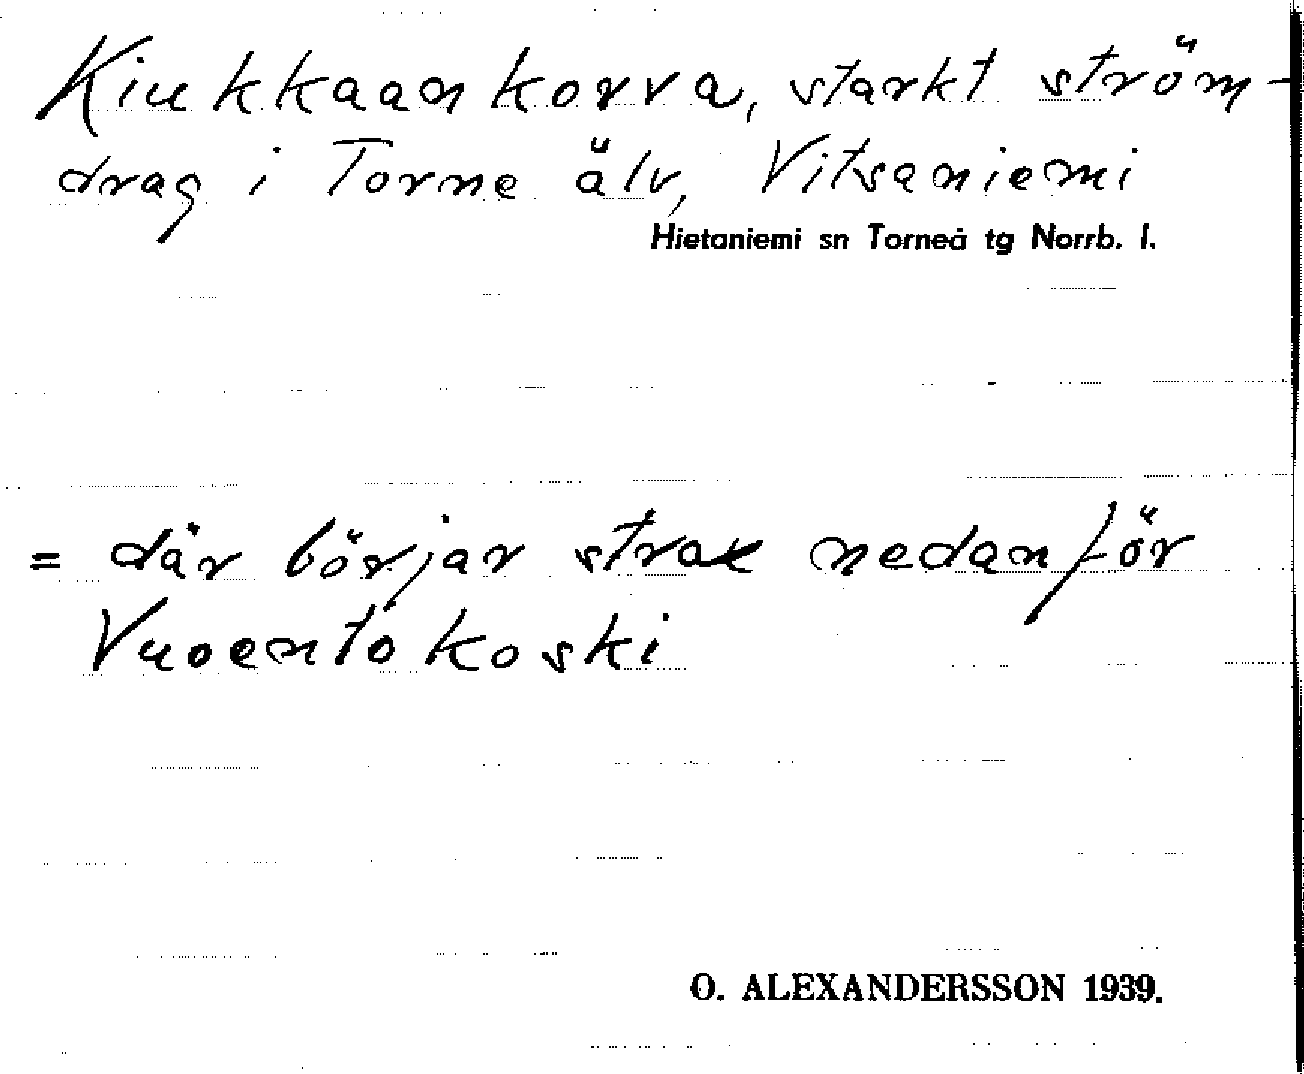 Kiukkaankorva, starkt ström-
drag i Torne älv, Vitsaniemi
Hietaniemi sn Torneå tg Norrb. l.
= där börjar strax nedanför
Vuoentokoski
O. ALEXANDERSSON 1939.